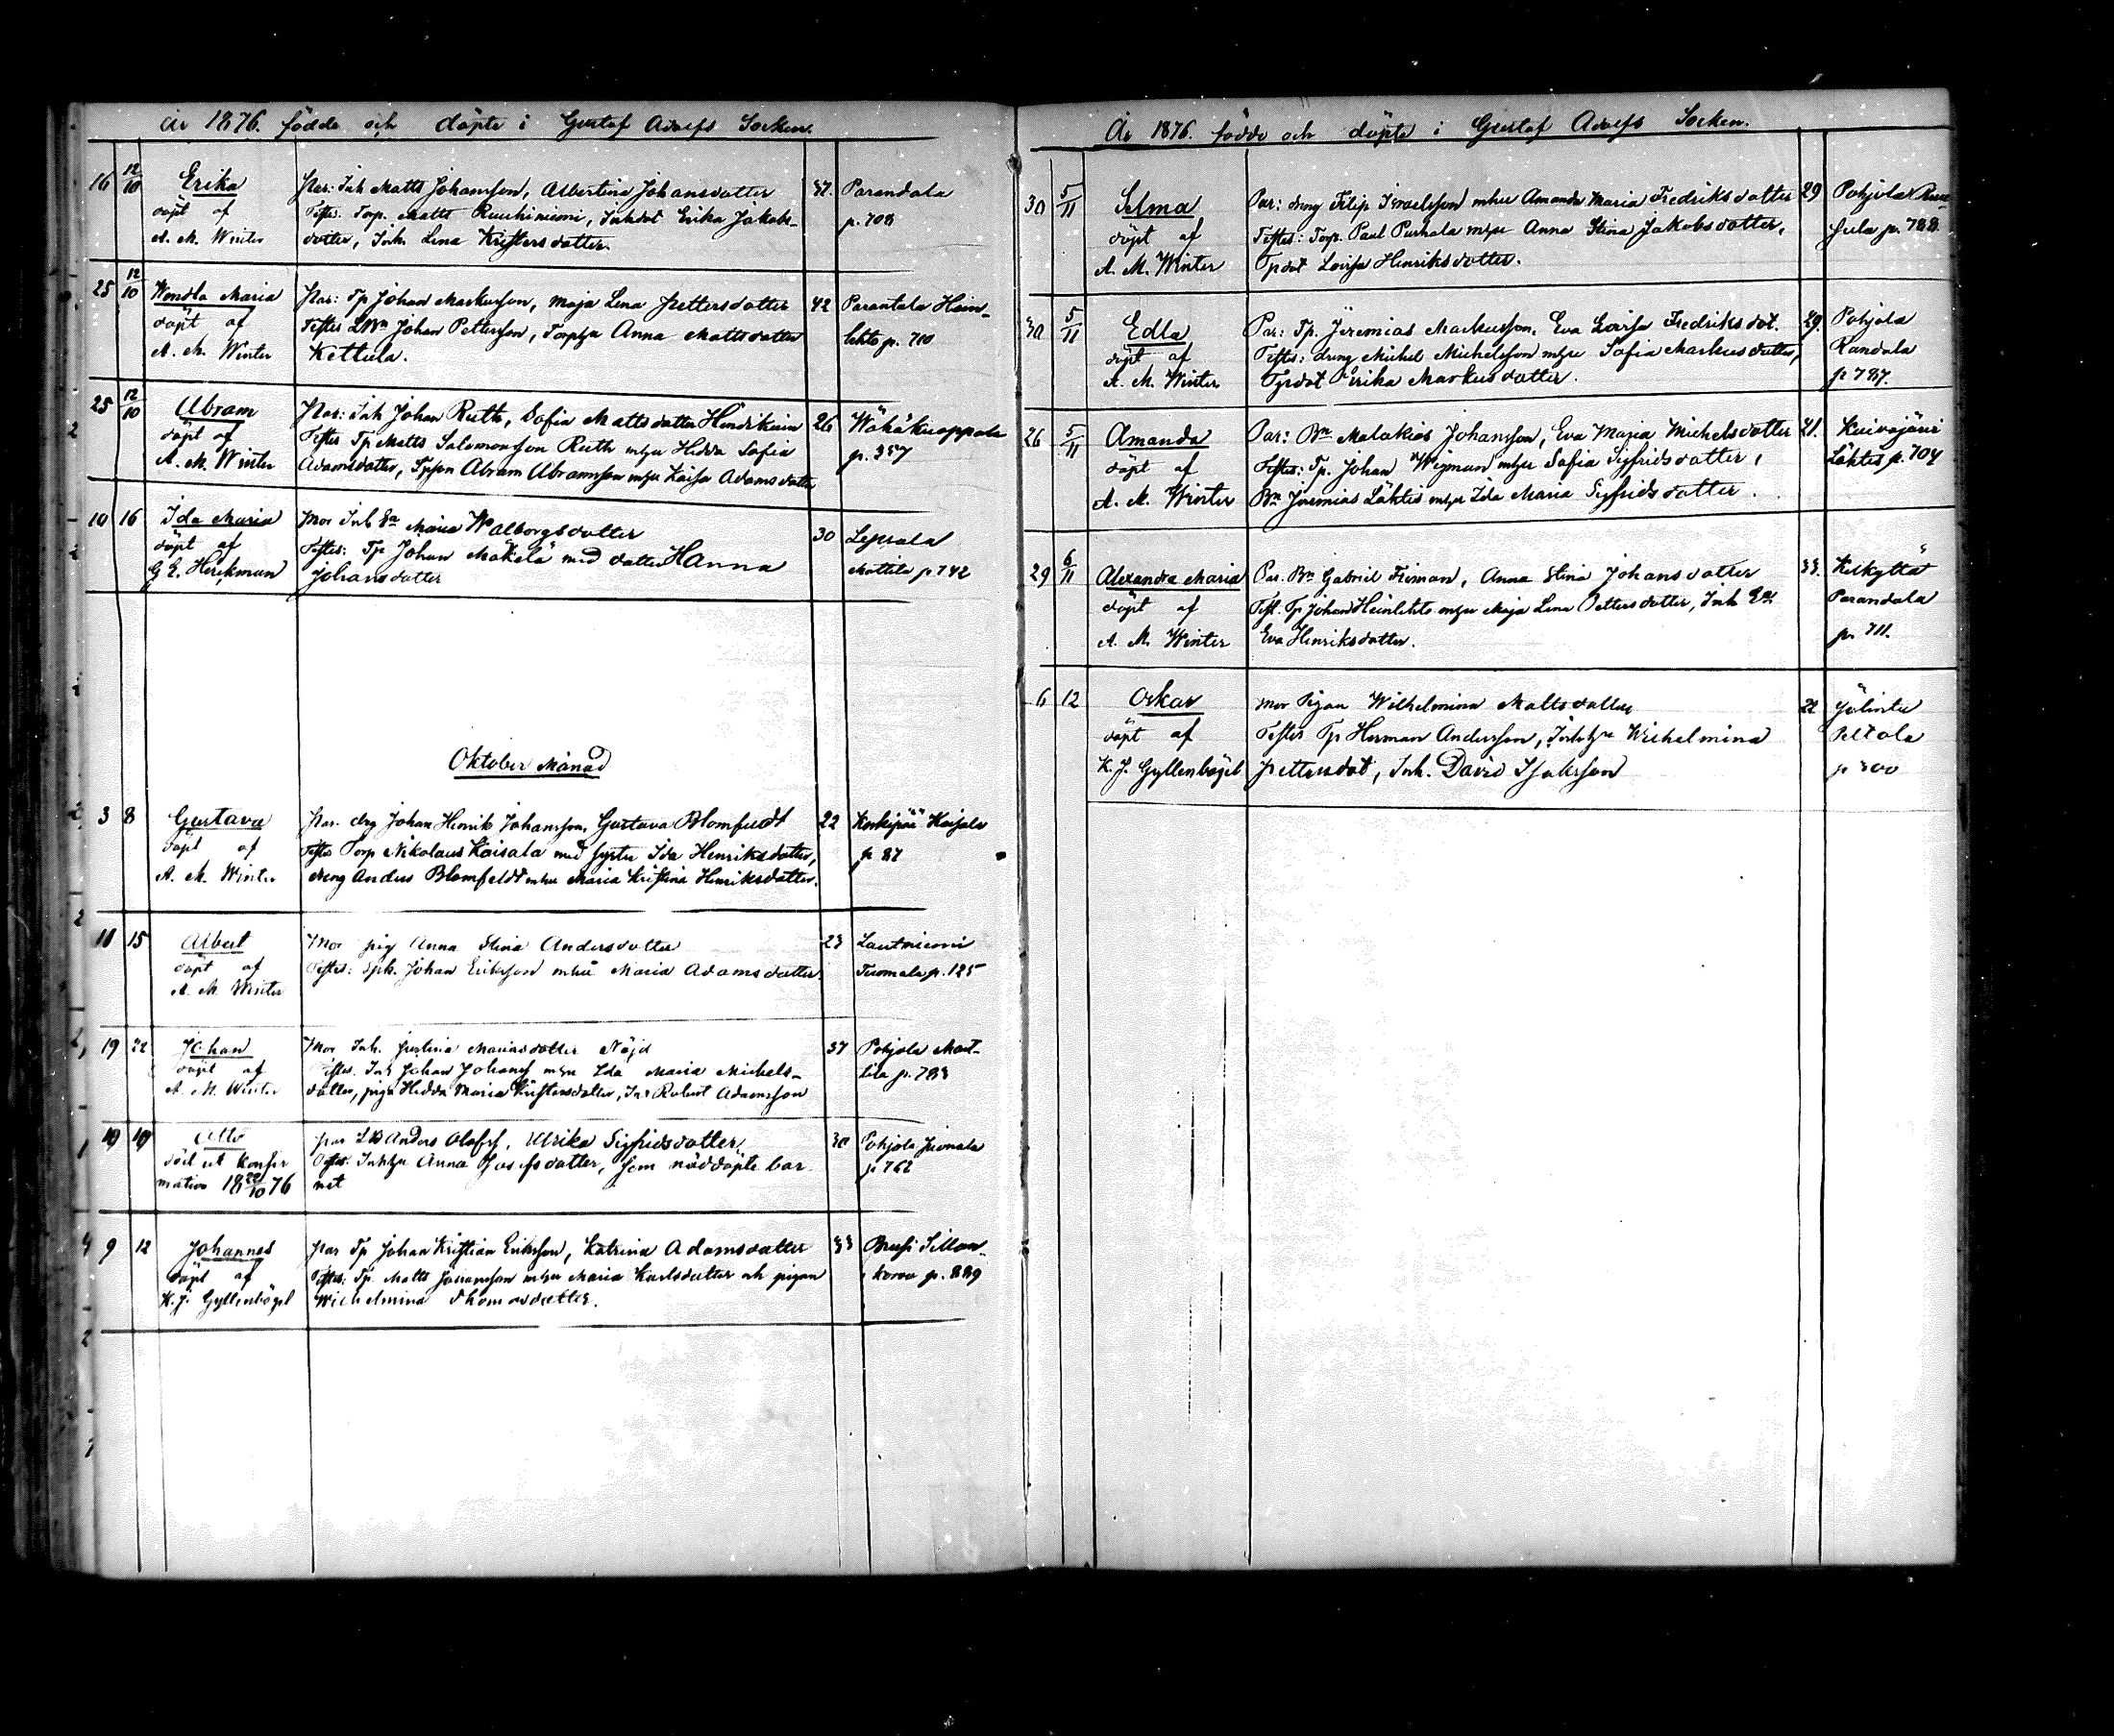 År 1876. födde och döpte i Gustaf Adolfs Socken.
16 12/10 Erika Par: Inh Matts Johansson, Albertina Johansdotter 37. Parandala
döpt af Testes. Torp. Matts Ruuhiniemi, Inhdot Erika Jakobs- p. 708
A. M. Winter dotter, Inh. Lena Kristersdotter.
25 12/10 Wendla Maria Par: Tp Johan Markusson, Maja Lena Pettersdotter 42 Parantala Hein-
döpt af Testes LBn Johan Pettersson, Torphu Anna Mattsdotter lehto p. 710
A. M. Winter Kettula.
25 12/10 Abram Par: Inh Johan Ruth, Sofia Mattsdotter Hendikain 26 Wähäkuoppala
döpt af Testes Tp Matts Salomonsson Ruth mhu Hedda Sofia p. 357
A. M. Winter Adamsdotter, Tpson Abram Abramsson mhu Kaisa Adamsdotter
10 16 Ida Maria Mor Inh Ea Maria Walborgsdotter 30 Leppala
döpt af Testes: Tp Johan Mäkelä med dotter Hanna Mattila p 742
G. E. Heickman Johansdotter
Oktober Månad
3 8 Gustava Par. drg Johan Henrik Johansson, Gustava Blomfeldt 22 Koskipää Kaisala
döpt af Testes Torp Nikolaus Kaisala med syster Ida Henriksdotter, p 87
A. M. Winter dreng Anders Blomfeldt mhu Maria Kristina Henriksdotter.
11 15 Albert Mor pig Anna Stina Andersdotter 23 Lautniemi
döpt af Testes: Spk. Johan Eriksson mhu Maria Adamsdotter. Tuomala p. 125
A. M. Winter
19 22 Johan Mor Inh. Justina Mariasdotter Nöjd 37 Pohjola Mart-
döpt af Testes. Inh Johan Johansf mhu Ida Maria Michels- tila p. 783
A. M. Winter dotter, piga Hedda Maria Kristersdotter, Inh Robert Adamsson
19 19 Otto par LB Anders Olofsf. Ulrika Sigfridsdotter 30 Pohjola Juonala
död ut konfir Testes. Inhhu Anna Josefsdotter, som nöddöpte bar- p 762
mation 18 22/10 76 net
9 12 Johannes par Tp Johan Kristian Eriksson, Katrina Adamsdotter 33 Brusi Sillan-
döpt af Testes: Tp. Matts Johansson mhu Maria Karlsdotter och pigan korva p. 889
K. J. Gyllenbögel Wilhelmina Thomasdotter.
År 1876. födde och döpte i Gustaf Adolfs Socken.
30 5/11 Selma Par: dreng Filip Israelsson mhu Amanda Maria Fredriksdotter 29 Pohjola
döpt af Testes: Torp. Paul Purhala mhu Anna Stina Jakobsdotter, p. 788
A. M. Winter Tpdot Lovisa Henriksdotter.
30 5/11 Edla Par: Tp. Jeremias Markusson, Eva Lovisa Fredriksdot. 29. Pohjola
döpt af Testes: dreng Michel Michelsson mhu Sofia Markusdotter, Randala
A. M. Winter Tpdot Erika Markusdotter. p 787.
26 5/11 Amanda Par: Bn Malakias Johansson, Eva Maria Michelsdotter 21. Kuivajärvi
döpt af Testes: Tp. Johan Wigman mhu Sofia Sigfridsdotter, Lähtis p. 704
A. M. Winter Bn Jeremias Lähtis mhu Ida Maria Sigfridsdotter.
29 6/11 Alexandra Maria Par. Bn Gabriel Friman, Anna Stina Johansdotter 33. Kelkyttä
döpt af Test. Tp Johan Heinlehto mhu Maja Lena Pettersdotter, Inh Ea Parandala
A. M. Winter Eva Henriksdotter. p. 711.
6 12 Oskar Mor Pigan Wilhelmina Mattsdotter 22 Jölintu
döpt af Testes Tp Herman Andersson, Inhhu Wilhelmina Peltola
K. J. Gyllenbögel Pettersdot, Inh. David Isaksson p 300